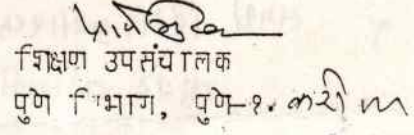 शिक्षण उपसंचालक
पुणे विभाग, पुणे-१. करी